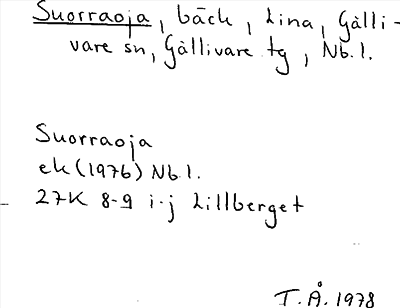 Suorraoja, bäck, Lina, Gälli-
vare sn, Gällivare tg, Nb.l.
Suorraoja
ek (1976) Nb.l.
27K 8-9 i-j Lillberget
T.Å. 1978